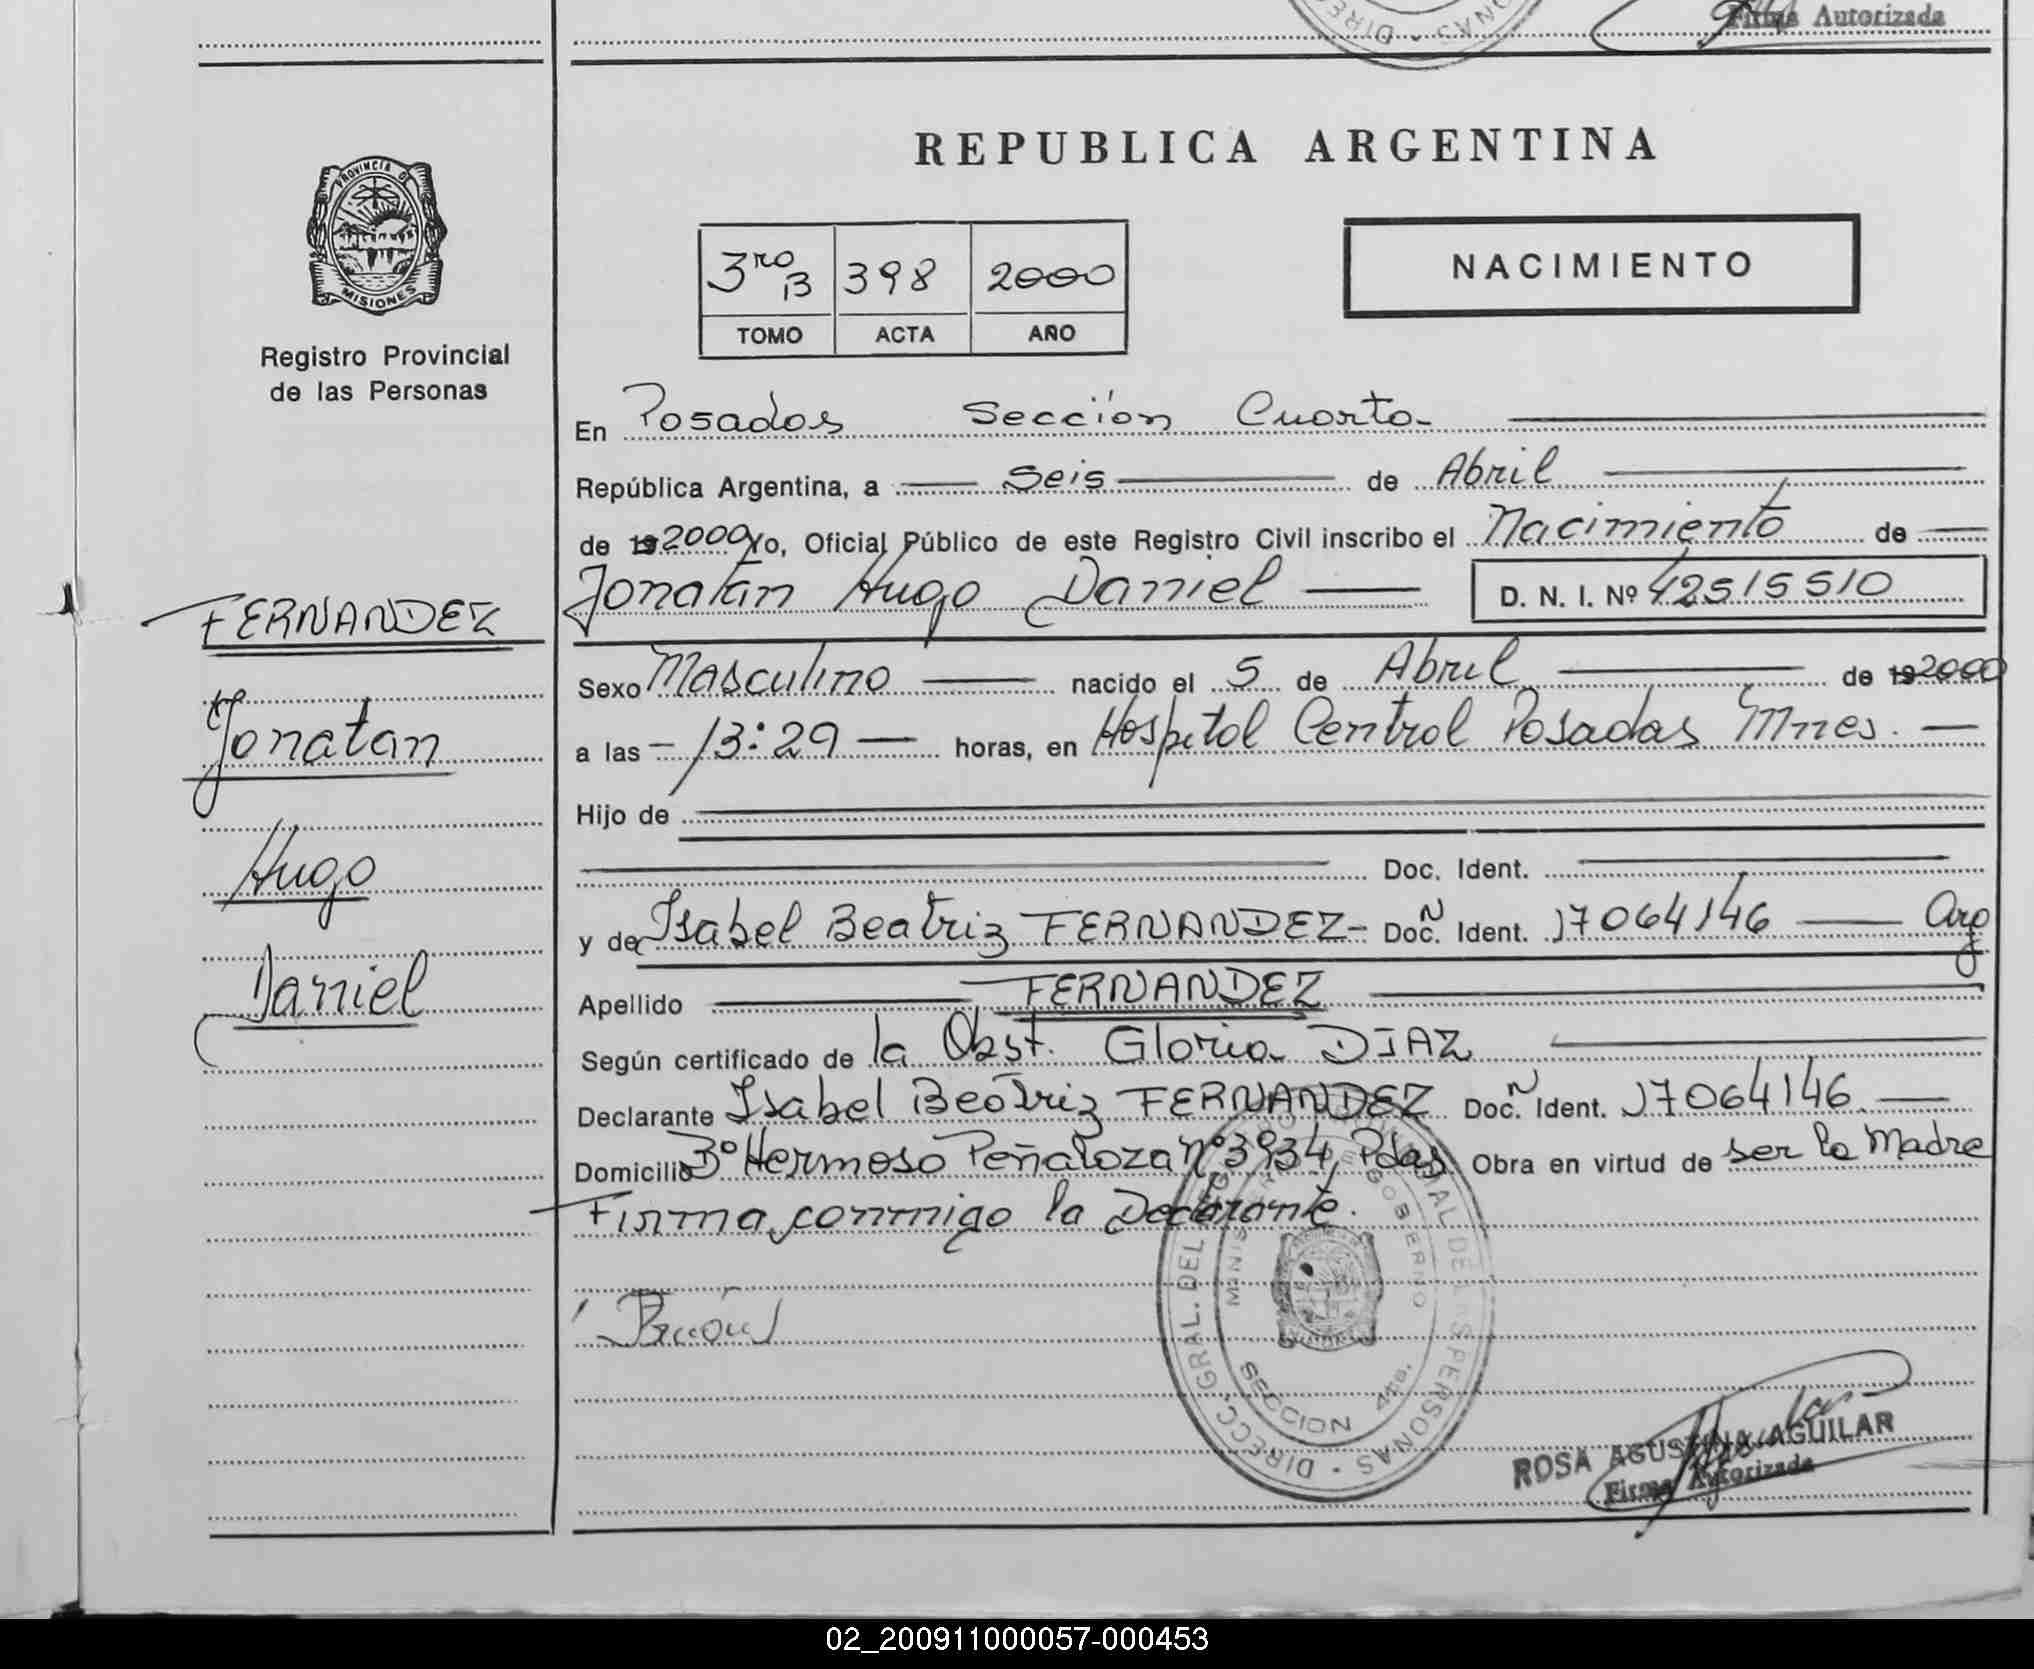 Firma Autorizada
DIRECC
PERSONAS
PROVINCIA DE
MISIONES
Registro Provincial
de las Personas
REPUBLICA ARGENTINA
3ro B 398 2000
TOMO ACTA AÑO
NACIMIENTO
En Posadas Sección Cuarta
República Argentina, a seis de Abril
de 19 2000 Yo, Oficial Público de este Registro Civil inscribo el Nacimiento de
Jonatan Hugo Daniel D. N. I. Nº 42515510
FERNANDEZ
Jonatan
Hugo
Daniel
Sexo Masculino nacido el 5 de Abril de 19 2000
a las 13:29 horas, en Hospital Central Posadas Mnes.
Hijo de
Doc. Ident.
y de Isabel Beatriz FERNANDEZ- Doc. Ident. 17064146 Arg
Apellido FERNANDEZ
Según certificado de la Obst. Gloria DIAZ
Declarante Isabel Beatriz FERNANDEZ Doc. Ident. 17064146
Domicilio Bº Hermoso Peñaloza nº 3934, Pdas Obra en virtud de ser la Madre
Firma conmigo la Declarante.
DIRECC. GRAL. DEL REGISTRO PROVINCIAL DE LAS PERSONAS
MINISTERIO DE GOBIERNO
SECCION 4ta.
ROSA AGUSTINA AGUILAR
Firma Autorizada
02_200911000057-000453